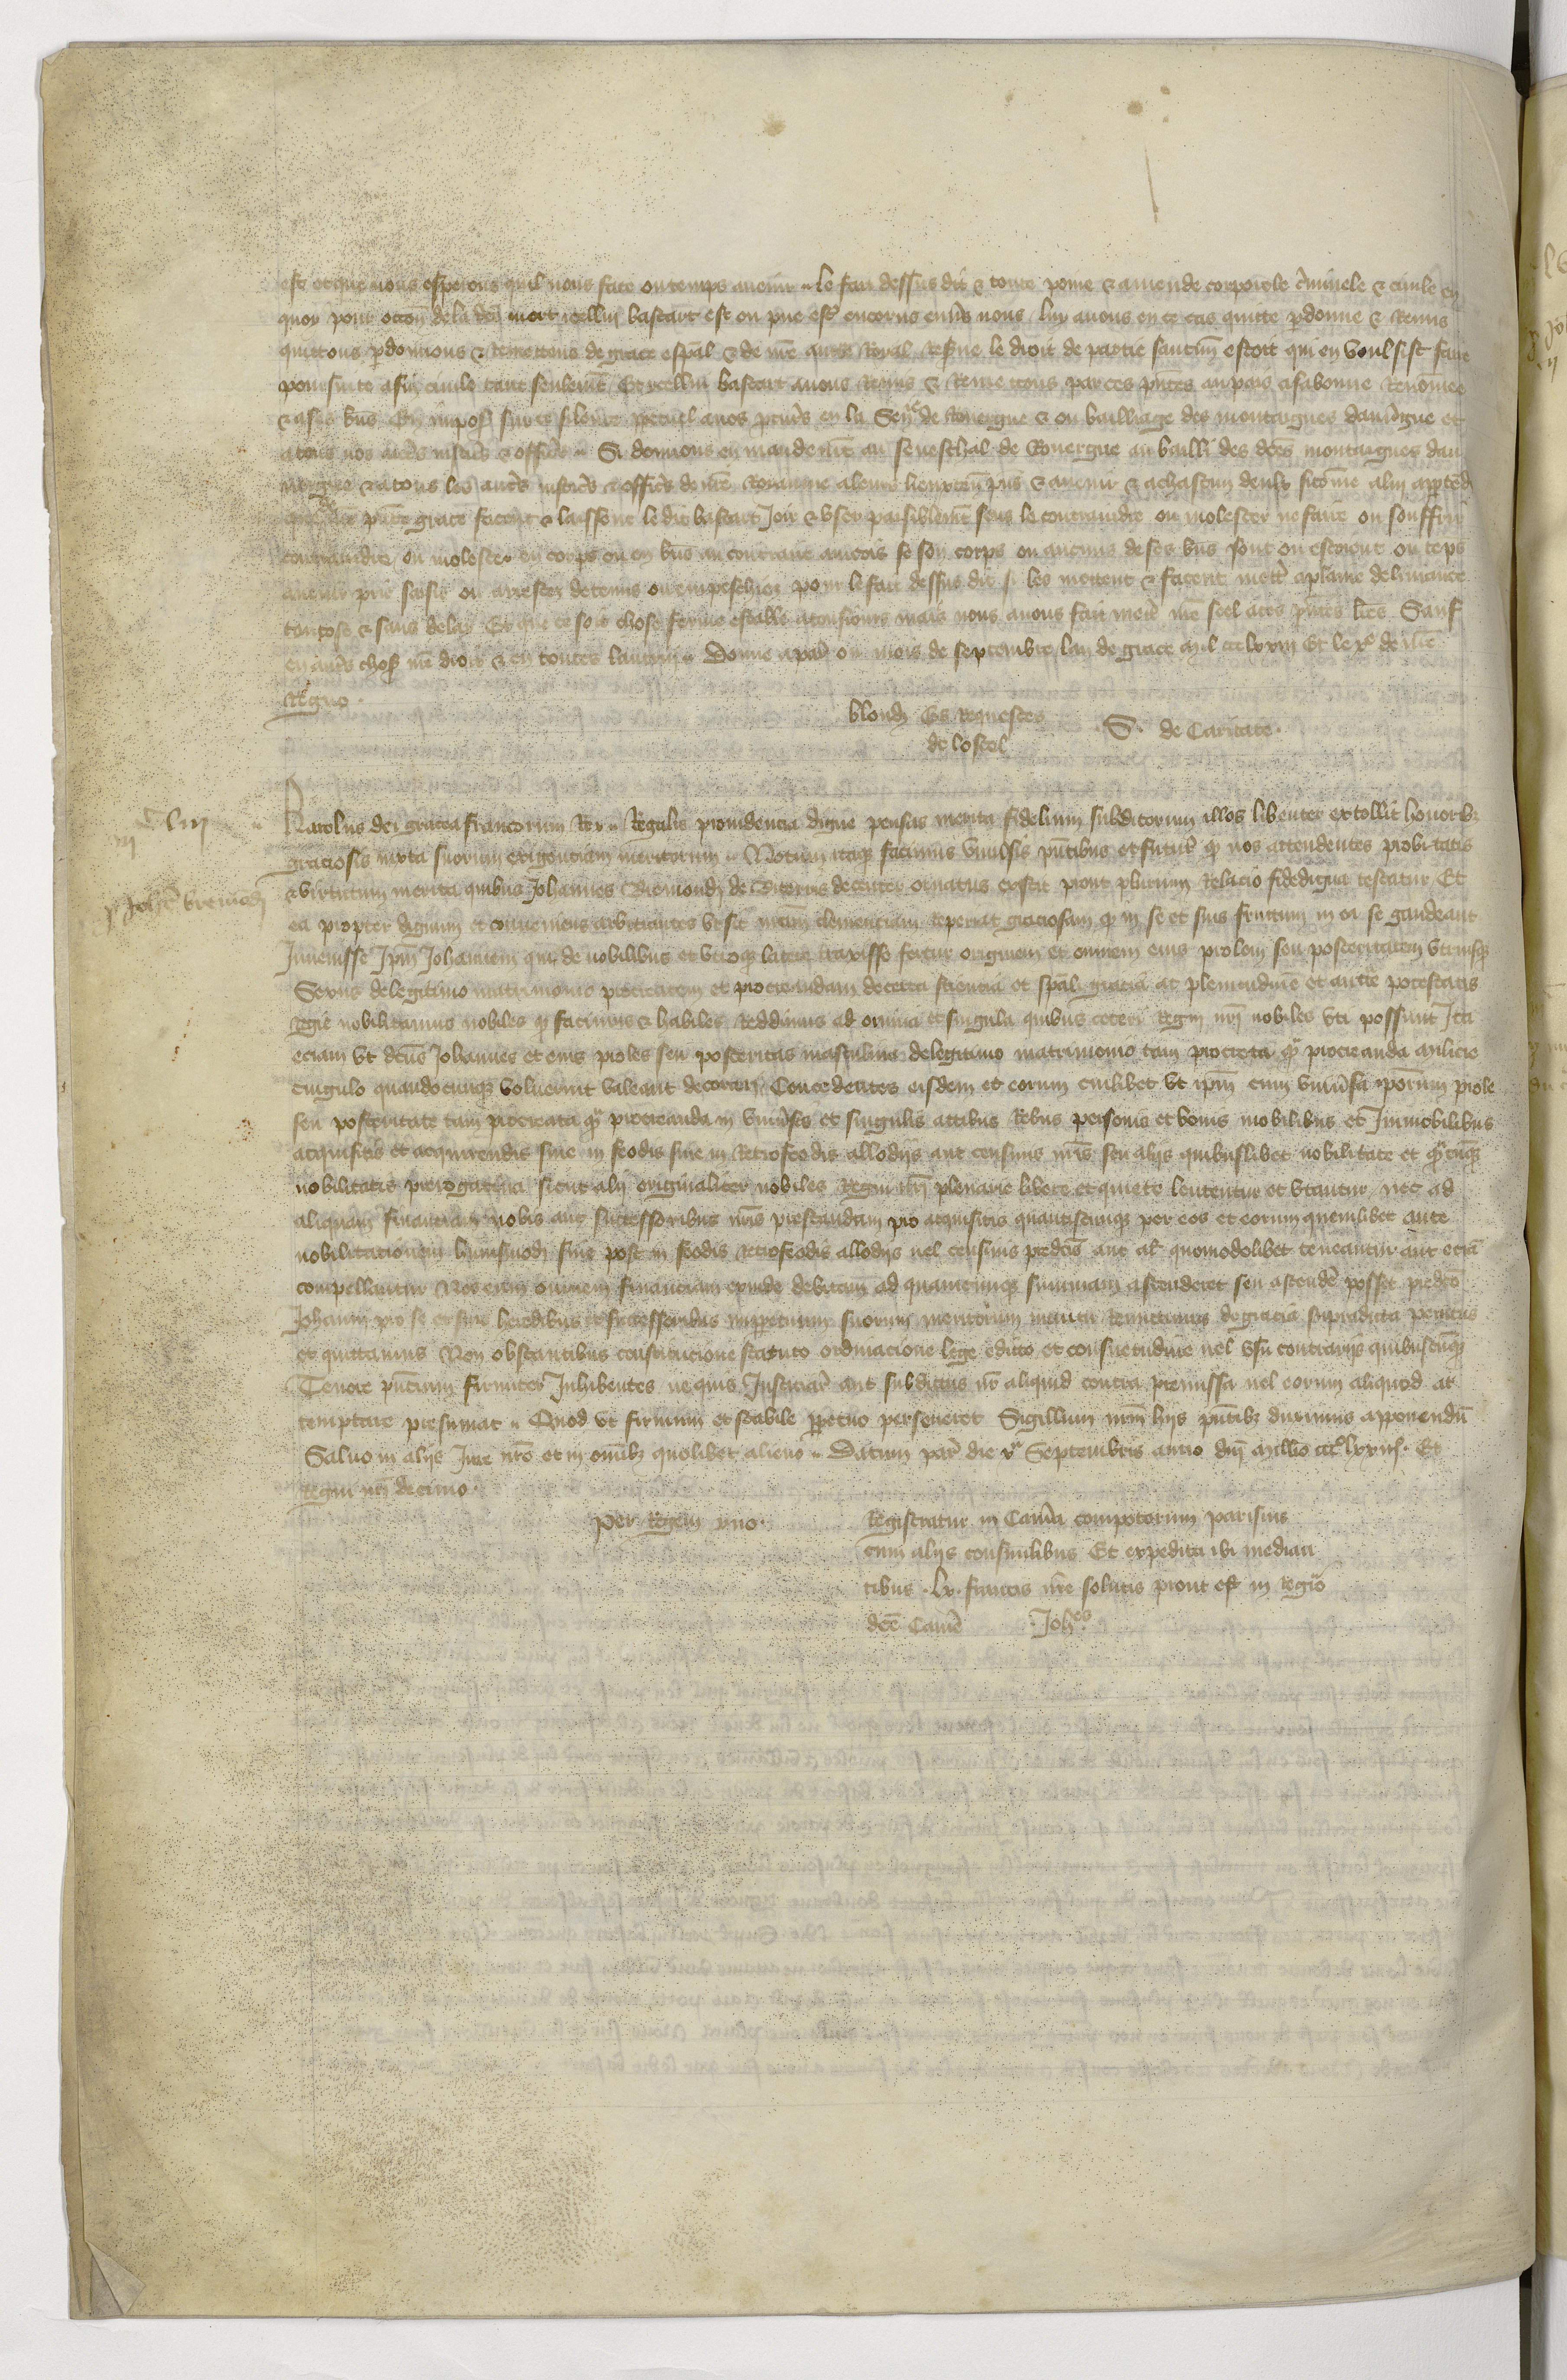 est et que nous esperons quil nous face ou temps avenir .. le fait dessus dit & toute peine & amende corporele c̃minele & civile en
quoy pour occõn de la dcẽ mort icellui bastart est ou pue est̃ encorus enũs nous luy avons en ce cas quitte p̱donne & Remis
quittons p̱donnons & Remettons de grace esp̃al & de nr̃e aucte Royal Res̃ve le droit de partie sancuñ estoit qui en voulsist faire
poursuite a fin civile tant seulemt̃ Et icellui bastart avons Remis & Remettons par ces p̃ntes au pais a sa bonne Renom̃ee
& a ses bñs En impos̃ sur ce silence p̱petuel a nos pcur̃s en la Señ de Rouergue & ou bailliage des montaignes dauv̾gne et
a tous nos autr̃s justic̾s & offic̾s .. Si donnons en mandemt̃ au seneschal de Rouergue au bailli des dcẽs montaignes dau
vergne & a tous les autr̃s justic̾s & offic̾s de nr̃e Royaume a leurs lieuxteñ p̃ns & avenir & a chascun deulx sicom̃e a lui app̱tẽdr̃
que de nr̃e p̃nte grace facent & laissent le dit bastart Joir & user paisiblemt̃ sens le contraindre ou molester ne faire ou souffrir
contraindre ou molester en corps ou en bñs au contraire aincois se son corps ou aucuns de ses bñs sont ou estoient ou tẽps
avenir prĩs saisis ou arrestez detenus ou empeschiez pour le fait dessus dit si les mettent & facent mettr̃ a plaine delivrance
tantost & sans delay Et que ce soit chose ferme estable a tousiours mais nous avons fait mettr̃ nr̃e seel a ces p̃ntes lr̃es Sauf
en autr̃s choss̃ nr̃e droit & en toutes lautruy .. Donne a par̾ ou mois de septembre lan de grace mil ccclxxiij Et le xe de nr̃e
Regne .
blondẽ Es Requestes
de lostel
S. de Caritate .
clvij
p̱ Joh̃e bremũdj
Karolus dei gracia francorum Rex .. Regalis providencia digne pensãs merita fidelium subditorum illos libenter extollit honorib;
graciosis iuxta suorum exigenciam meritorum .. Notum itaq; facimus univ̾sis p̃ntibus et futur̾ q̃ nos attendentes probitatis
& virtutum merita quibus Johannes Bremondj de decenter ornatus existit prout plurium Relacio fidedigna testatur Et
ea propter dignum et conveniens arbitrantes ut sit nr̃am clemenciam Reperiat graciosam q̃ in se et suis fructum in ea se gaudeant
Invenisse Ip̃m Johannem qui de nobilibus ex utroq; latere traxisse fertur originem et omnem eius prolem seu posteritatem utriusq;
Sexus de legitimo matrimonio procreatam et procreandam de certa sciencia et sp̃ali gracia ac plenitudine et aucte potestatis
Regie nobilitamus nobiles q; facimus & habiles Reddimus ad omnia et singula quibus ceteri Regni nr̃i nobiles uti possunt Ita
eciam ut dcũs Johannes et eius proles seu posteritas masculina de legitimo matrimonio tam procreata q̃ procreanda milicie
cingulo quandocunq; voluerint valeant decorari Concedentes eisdem et eorum cuilibet ut ip̃m cum univ̾sa ip̃orum prole
seu posteritate tam procreata q̃ procreanda in univ̾sis et singulis actibus Rebus personis et bonis mobilibus et Immobilibus
acquisitis et acquirendis sive in feodis sive in Retrofeodis allodijs aut censivis nr̃is seu alijs quibuslibet nobilitate et q̃cũq;
nobilitatis prerogativa sicut alij originaliter nobiles Regni nr̃j plenarie libere et quiete letentur et utantur nec ad
aliquam financiam nobis aut successoribus nr̃is prestandam pro acquisitis quantiscunq; per eos et eorum quemlibet ante
nobilitacionem huiusmodj sive post in feodis retrofeodis allodijs vel censivis predcĩs aut al̃ quomodolibet teneantur aut eciã
compellantur Nos enim omnem financiam exinde debitam ad quamcunq; summam ascenderet seu ascender̃ posset predcõ
Johanni pro se et suis heredibus & successoribus imp̱petuum suorum meritorum intuitu Remittimus de gracia supradicta penitus
et quittamus Non obstantibus constitucione statuto ordinacione lege edicto et consuetudine vel usu contrarijs quibuscũq;
Tenore p̃ncium firmiter Inhibentes ne quis Justiciar̾ aut subditus nr̃ aliquid contra premissa vel eorum aliquod at
temptare presumat .. Quod ut firmum et stabile p̱petuo perseveret Sigillum nr̃m hijs p̃ntib; duximus apponendũ
Salvo in alijs Jure nr̃o et in om̃ib; quolibet alieno .. Datum par̾ die xa Septembris anno dñi millo ccco lxxiijo. Et
Regni nr̃i decimo .
Per Regem
Registratur in Cam̃a compotorum parisius
cum alijs consimilibus Et expedita ibi mediã
tibus . lx . francis solutis prout est in Regro
dcẽ Cam̃e . Johes.